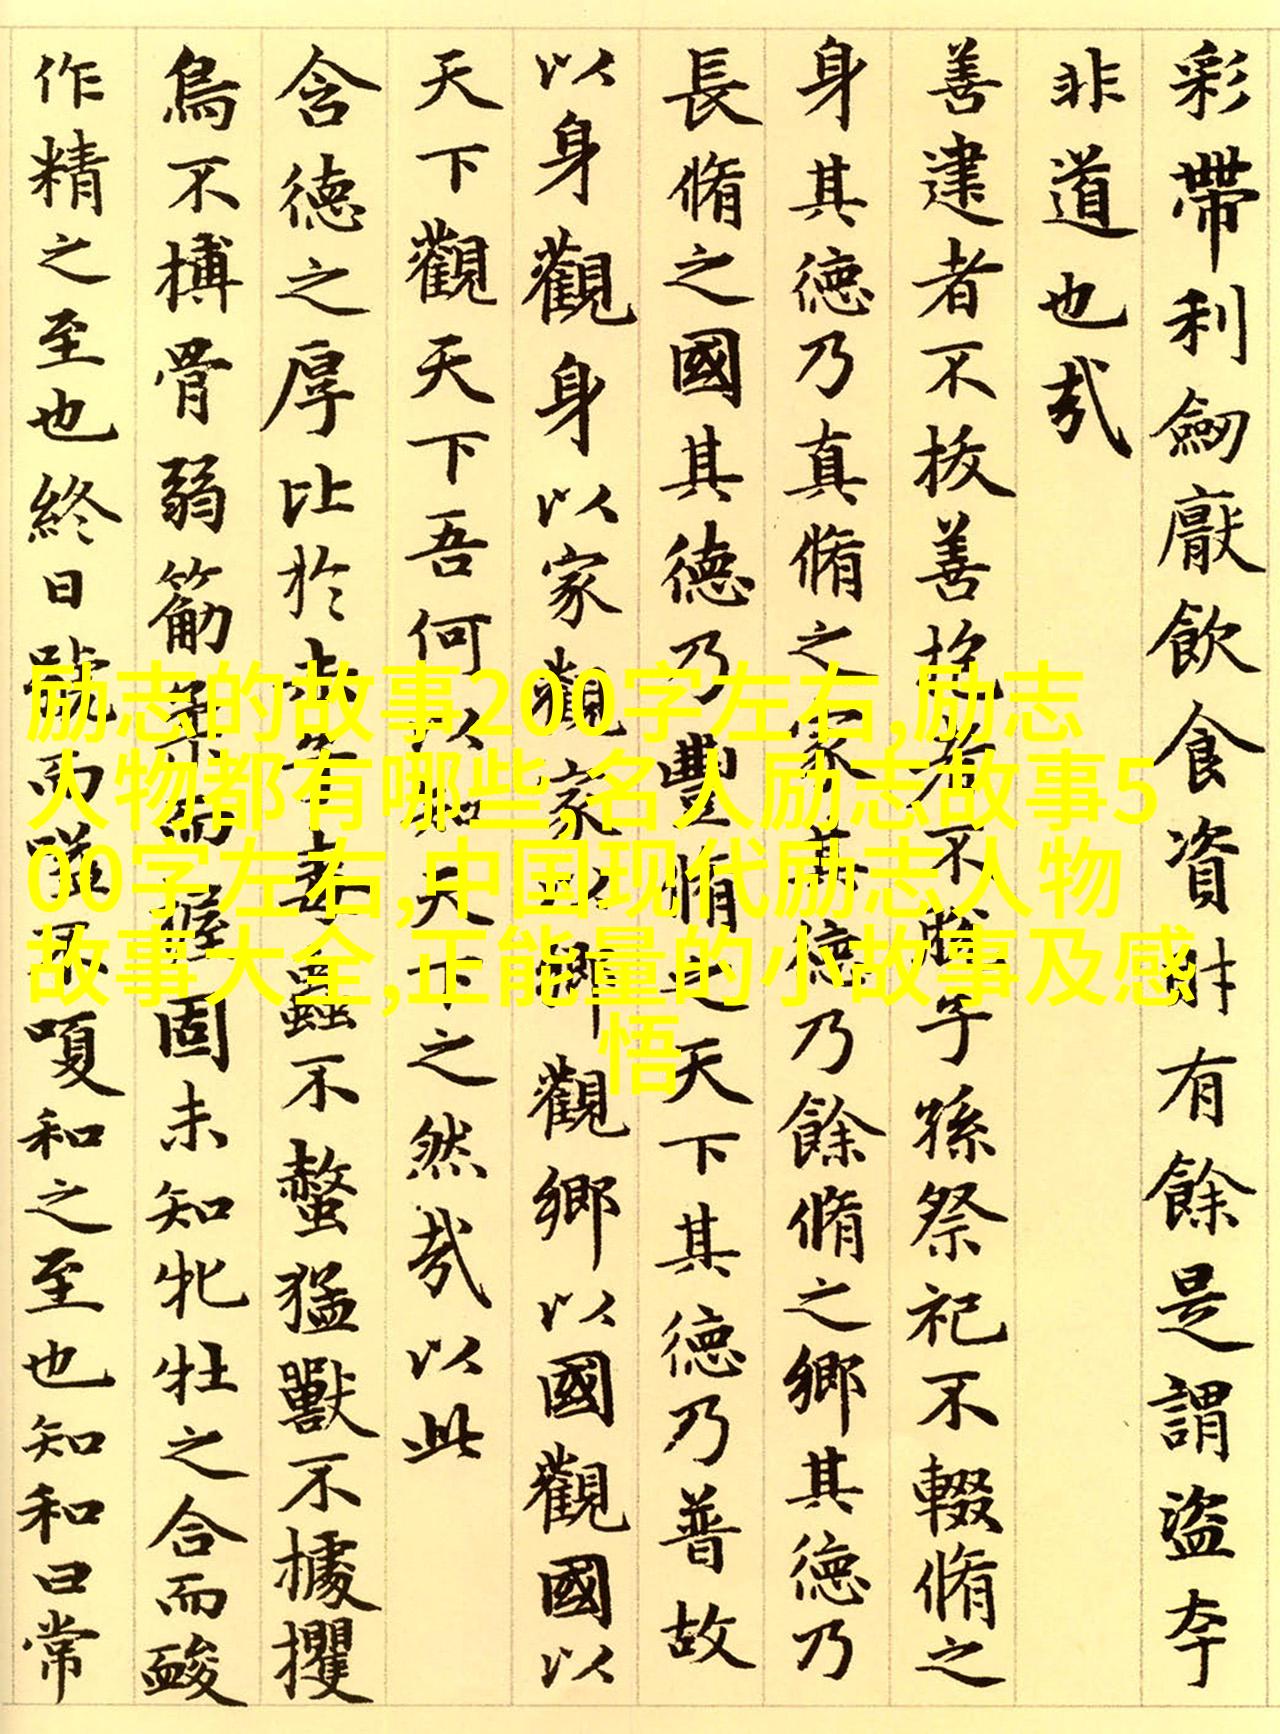 彩帶利劒厭飲食資財有餘是謂盜夸
非道也哉
善建者不拔善抱者不脫子孫祭祀不輟脩之
身其德乃真脩之家其德乃餘脩之鄉其德乃
長脩之國其德乃豐脩之天下其德乃普故
以身觀身以家觀家以鄉觀鄉以國觀國以
天下觀天下吾何以知天下之然哉以此
含德之厚比於赤子毒蟲不螫猛獸不據攫
鳥不搏骨弱筋柔而握固未知牝牡之合而酸
作精之至也終日號而嗌不嗄和之至也知和曰常
励志的故事200字左右,励志
人物都有哪些,名人励志故事5
00字左右,中国现代励志人物
故事大全,正能量的小故事及感
悟